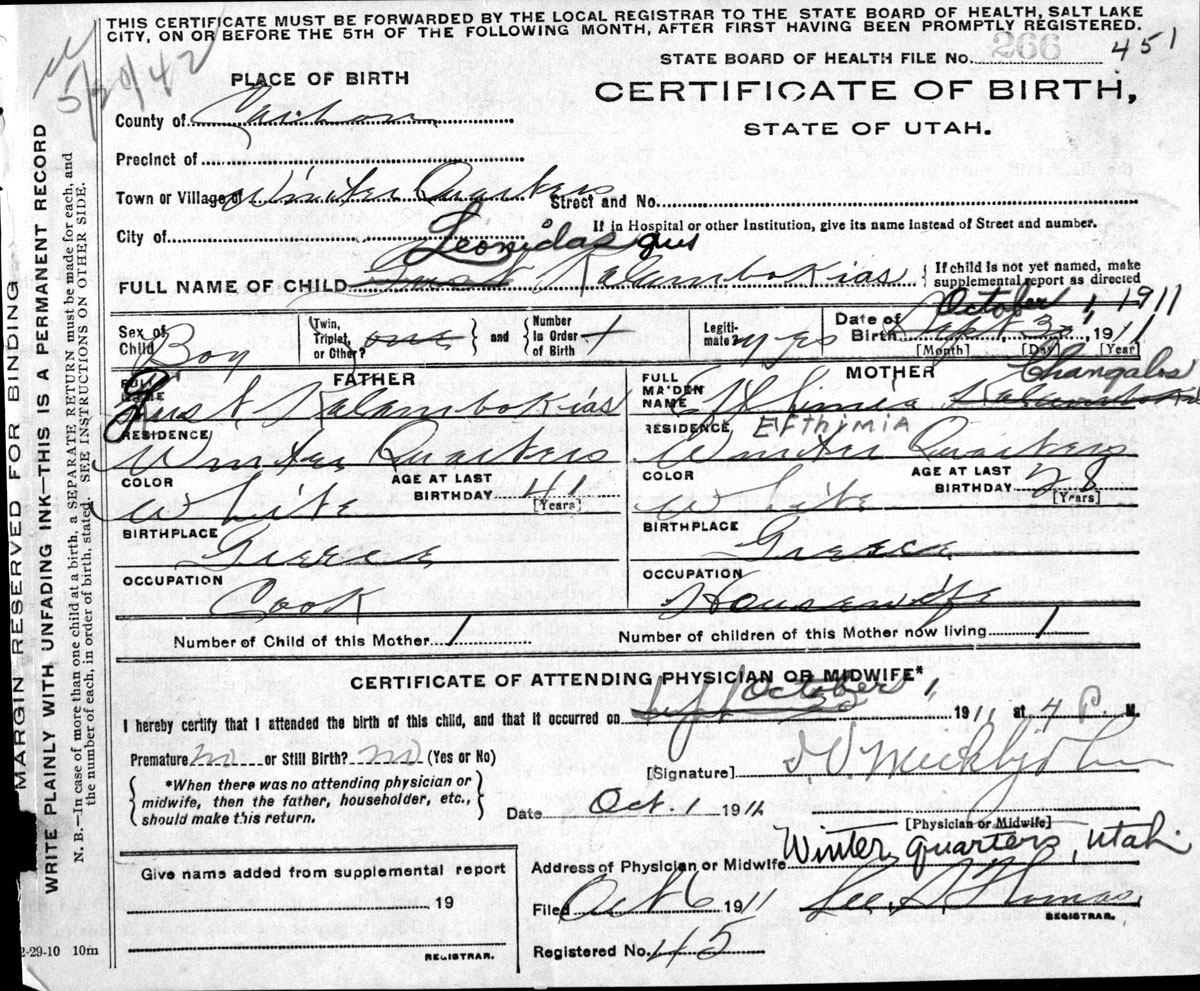 THIS CERTIFICATE MUST BE FORWARDED BY THE LOCAL REGISTRAR TO THE STATE BOARD OF HEALTH, SALT LAKE
CITY, ON OR BEFORE THE 5TH OF THE FOLLOWING MONTH, AFTER FIRST HAVING BEEN PROMPTLY REGISTERED.
5/20/42
STATE BOARD OF HEALTH FILE No. 266 451
PLACE OF BIRTH
CERTIFICATE OF BIRTH,
STATE OF UTAH.
County of Carbon
Precinct of
Town or Village of Winter Quarters Street and No.
If in Hospital or other Institution, give its name instead of Street and number.
City of
Leonidas Gus
FULL NAME OF CHILD Gust Kalambokias { If child is not yet named, make
supplemental report as directed
October 1, 1911
Sex of Child Boy { Twin, Triplet, or Other? one } and { Number In Order of Birth 1 Legiti- mate? yes Date of Birth Sept 30, 1911
[Month] [Day] [Year]
FATHER
MOTHER
FULL NAME Gust Kalambokias
FULL MA'DEN NAME Efthimia Kalambokias Changalos
RESIDENCE Winter Quarters
RESIDENCE, EFThYMIA Winter Quarters
COLOR White AGE AT LAST BIRTHDAY 41 [Years]
COLOR White AGE AT LAST BIRTHDAY 28 [Years]
BIRTHPLACE Greece
BIRTHPLACE Greece
OCCUPATION Cook
OCCUPATION Housewife
Number of Child of this Mother 1 Number of children of this Mother now living 1
CERTIFICATE OF ATTENDING PHYSICIAN OR MIDWIFE*
October 1,
I hereby certify that I attended the birth of this child, and that it occurred on Sept 30 1911 at 4 P. M.
Premature no or Still Birth? no (Yes or No)
[Signature]
{ *When there was no attending physician or
midwife, then the father, householder, etc.,
should make this return. }
Date Oct. 1 1911
[Physician or Midwife]
Address of Physician or Midwife Winter Quarters, Utah.
Give name added from supplemental report
19
REGISTRAR.
Filed Oct 6 1911 Lee A Thomas
REGISTRAR.
Registered No. 45
2-29-10 10m
MARGIN RESERVED FOR BINDING
WRITE PLAINLY WITH UNFADING INK—THIS IS A PERMANENT RECORD
N. B.—In case of more than one child at a birth, a SEPARATE RETURN must be made for each, and
the number of each, in order of birth, stated. SEE INSTRUCTIONS ON OTHER SIDE.